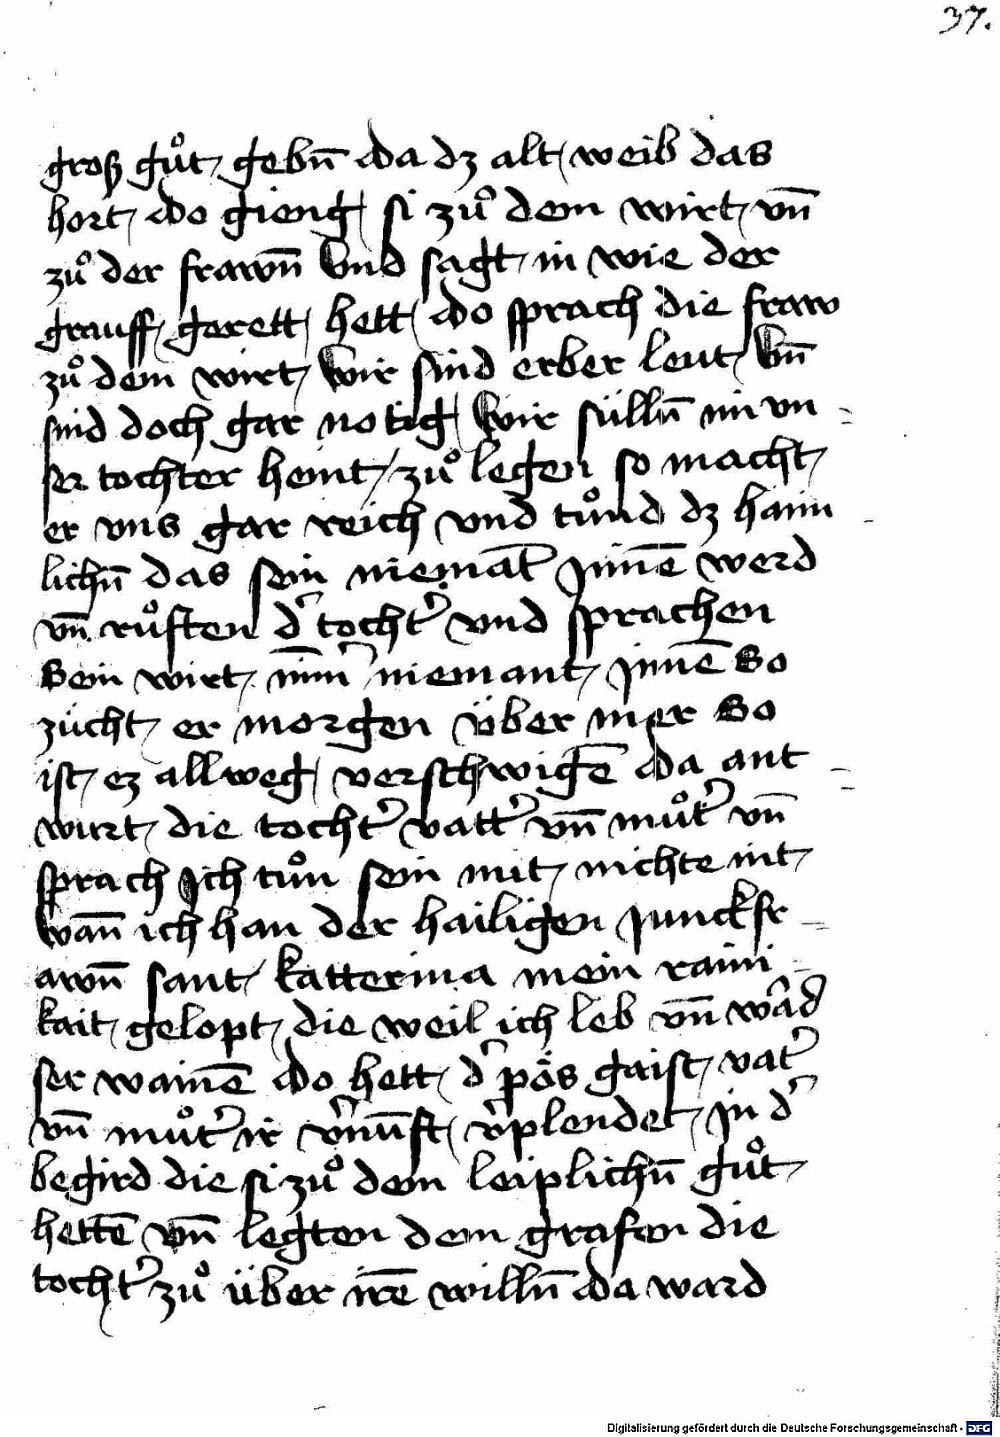 37.
groß gůt gebn̄ da dz alt weib das
hort do gieng si zů dem wirt vn̄
zů der frawn̄ vnd sagt in wie der
grauff gerett hett do sprach die fraw
zů dem wirt wir sind erber leut vn̄
sind doch gar notig wir sülln̄ im vn=
ser tochter heint zů legen so macht
er vns gar reich vnd tůnd dz haim-
lichn̄ das sein niemāt jnnē werd
vn̄ růften d' tocht' vnd sprachen
Sein wirt nim̄' niemant jnnē So
zücht er morgen über mer So
ist ez allweg verschwigē da ant=
wurt die tocht' vatt' vn̄ můt' vn̄
sprach Ich tůn sein mit nichte nit
wan̄ ich han der hailigen junckfr=
awn̄ sant katterina mein raini-
kait gelopt die weil ich leb vn̄
ser wainē do hett d' pös gaist vat'
vn̄ můt' ir v'nūft v'plendet jn d'
begird die si zů dem leiplichn̄ gůt
hettē vn̄ legten dem grafen die
tocht' zů über irē willn̄ da ward
Digitalisierung gefördert durch die Deutsche Forschungsgemeinschaft - DFG